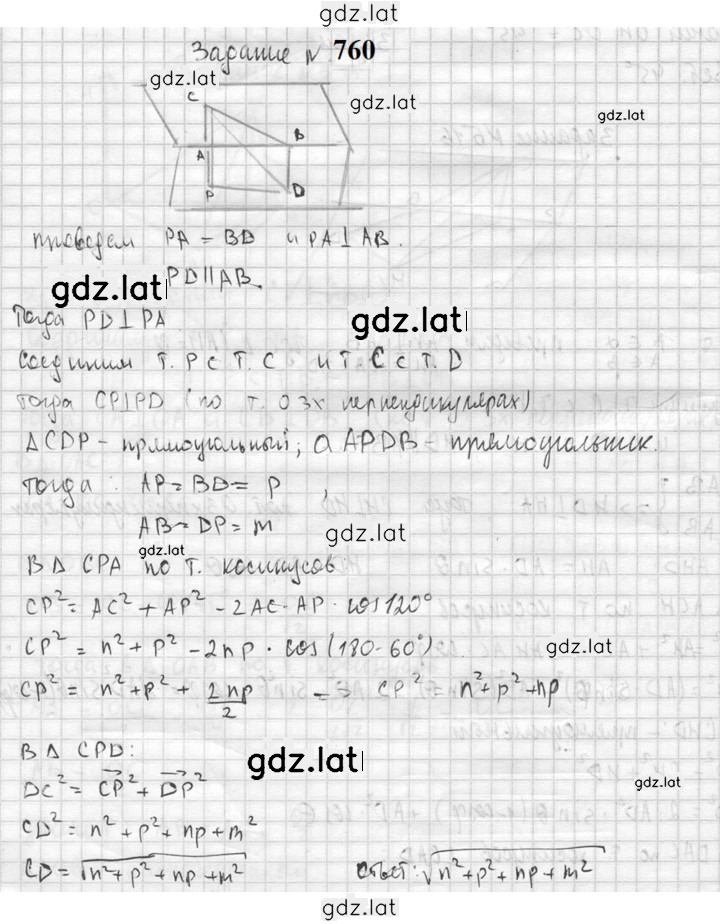 gdz.lat
Задание № 760
gdz.lat
gdz.lat
gdz.lat
C
A B
P D
проведем PA = BD и PA ⊥ AB.
PD || AB.
gdz.lat
Тогда PD ⊥ PA
gdz.lat
Соединим т. P с т. C и т. C с т. D
тогда CP⊥PD (по т. о 3х перпендикулярах)
Δ CDP - прямоугольный; а APDB - прямоугольник.
тогда: AP = BD = P,
AB = DP = m
gdz.lat
gdz.lat
В Δ CPA по т. косинусов
CP² = AC² + AP² - 2AC · AP · cos 120°
CP² = n² + p² - 2np · cos (180-60°)
gdz.lat
CP² = n² + p² + 2np/2 => CP² = n² + p² + np
В Δ CPD:
gdz.lat
DC² = CP² + DP²
gdz.lat
CD² = n² + p² + np + m²
CD = √n² + p² + np + m² ответ: √n² + p² + np + m²
gdz.lat